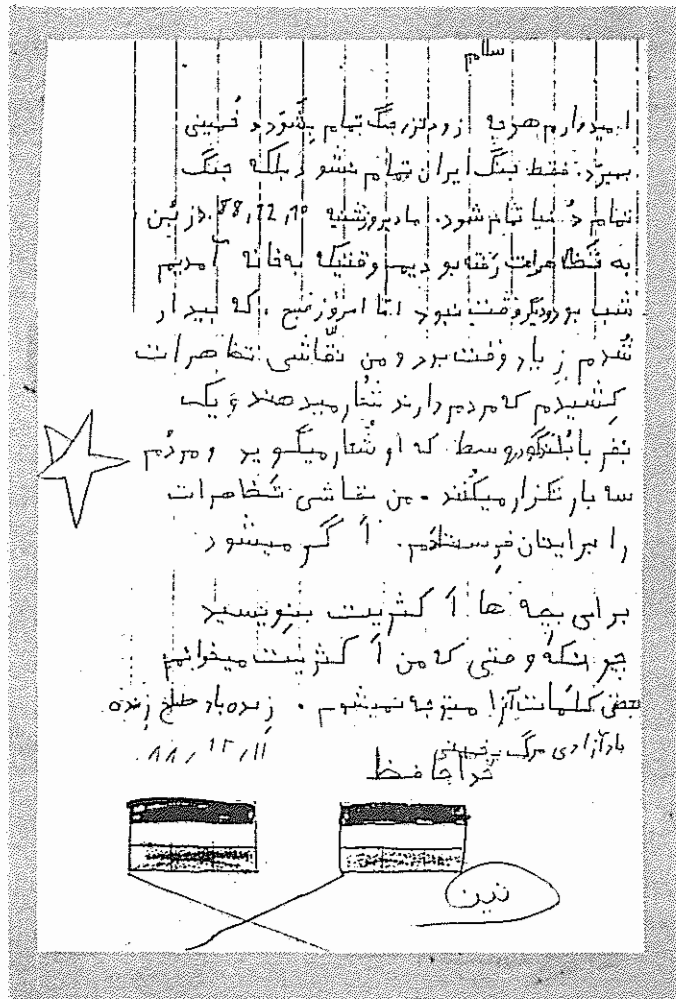 سلام
امیدوارم هرچه زودتر جنگ تمام بشود و خُمینی
بمیرد. فقط جنگ ایران تمام نشود بلکه جنگ
تمام دُنیا تمام شود. ما دیروز شنبه ۸۸,۱۲,۱۰ در بُن
به تَظاهرات رَفته بودیم وقتیکه به خانه آمدیم
شب بود و دیگر وقت نبود امّا امروز صُبح، که بیدار
شُدم زیاد وقت بود و من نقّاشی تظاهرات
کِشیدم که مردم دارند شُعار میدهند وَ یک
نفر با بُلندگو در وسط که او شُعار میگوید و مردُم
سه بار تکرار میکُنند. من نقاشی تَظاهرات
را برایتان فرِستادَم. اَگر میشود
برای بچه ها اَکثریت بنِویسید
چونکه وقتی که من اَکثریت میخوانم
بعضی کلمات آنرا متوجه نمیشوم. زِنده باد صلح زِنده
باد آزادی مرگ بر خمینی
خداحافظ
۸۸,۱۲,۱۱